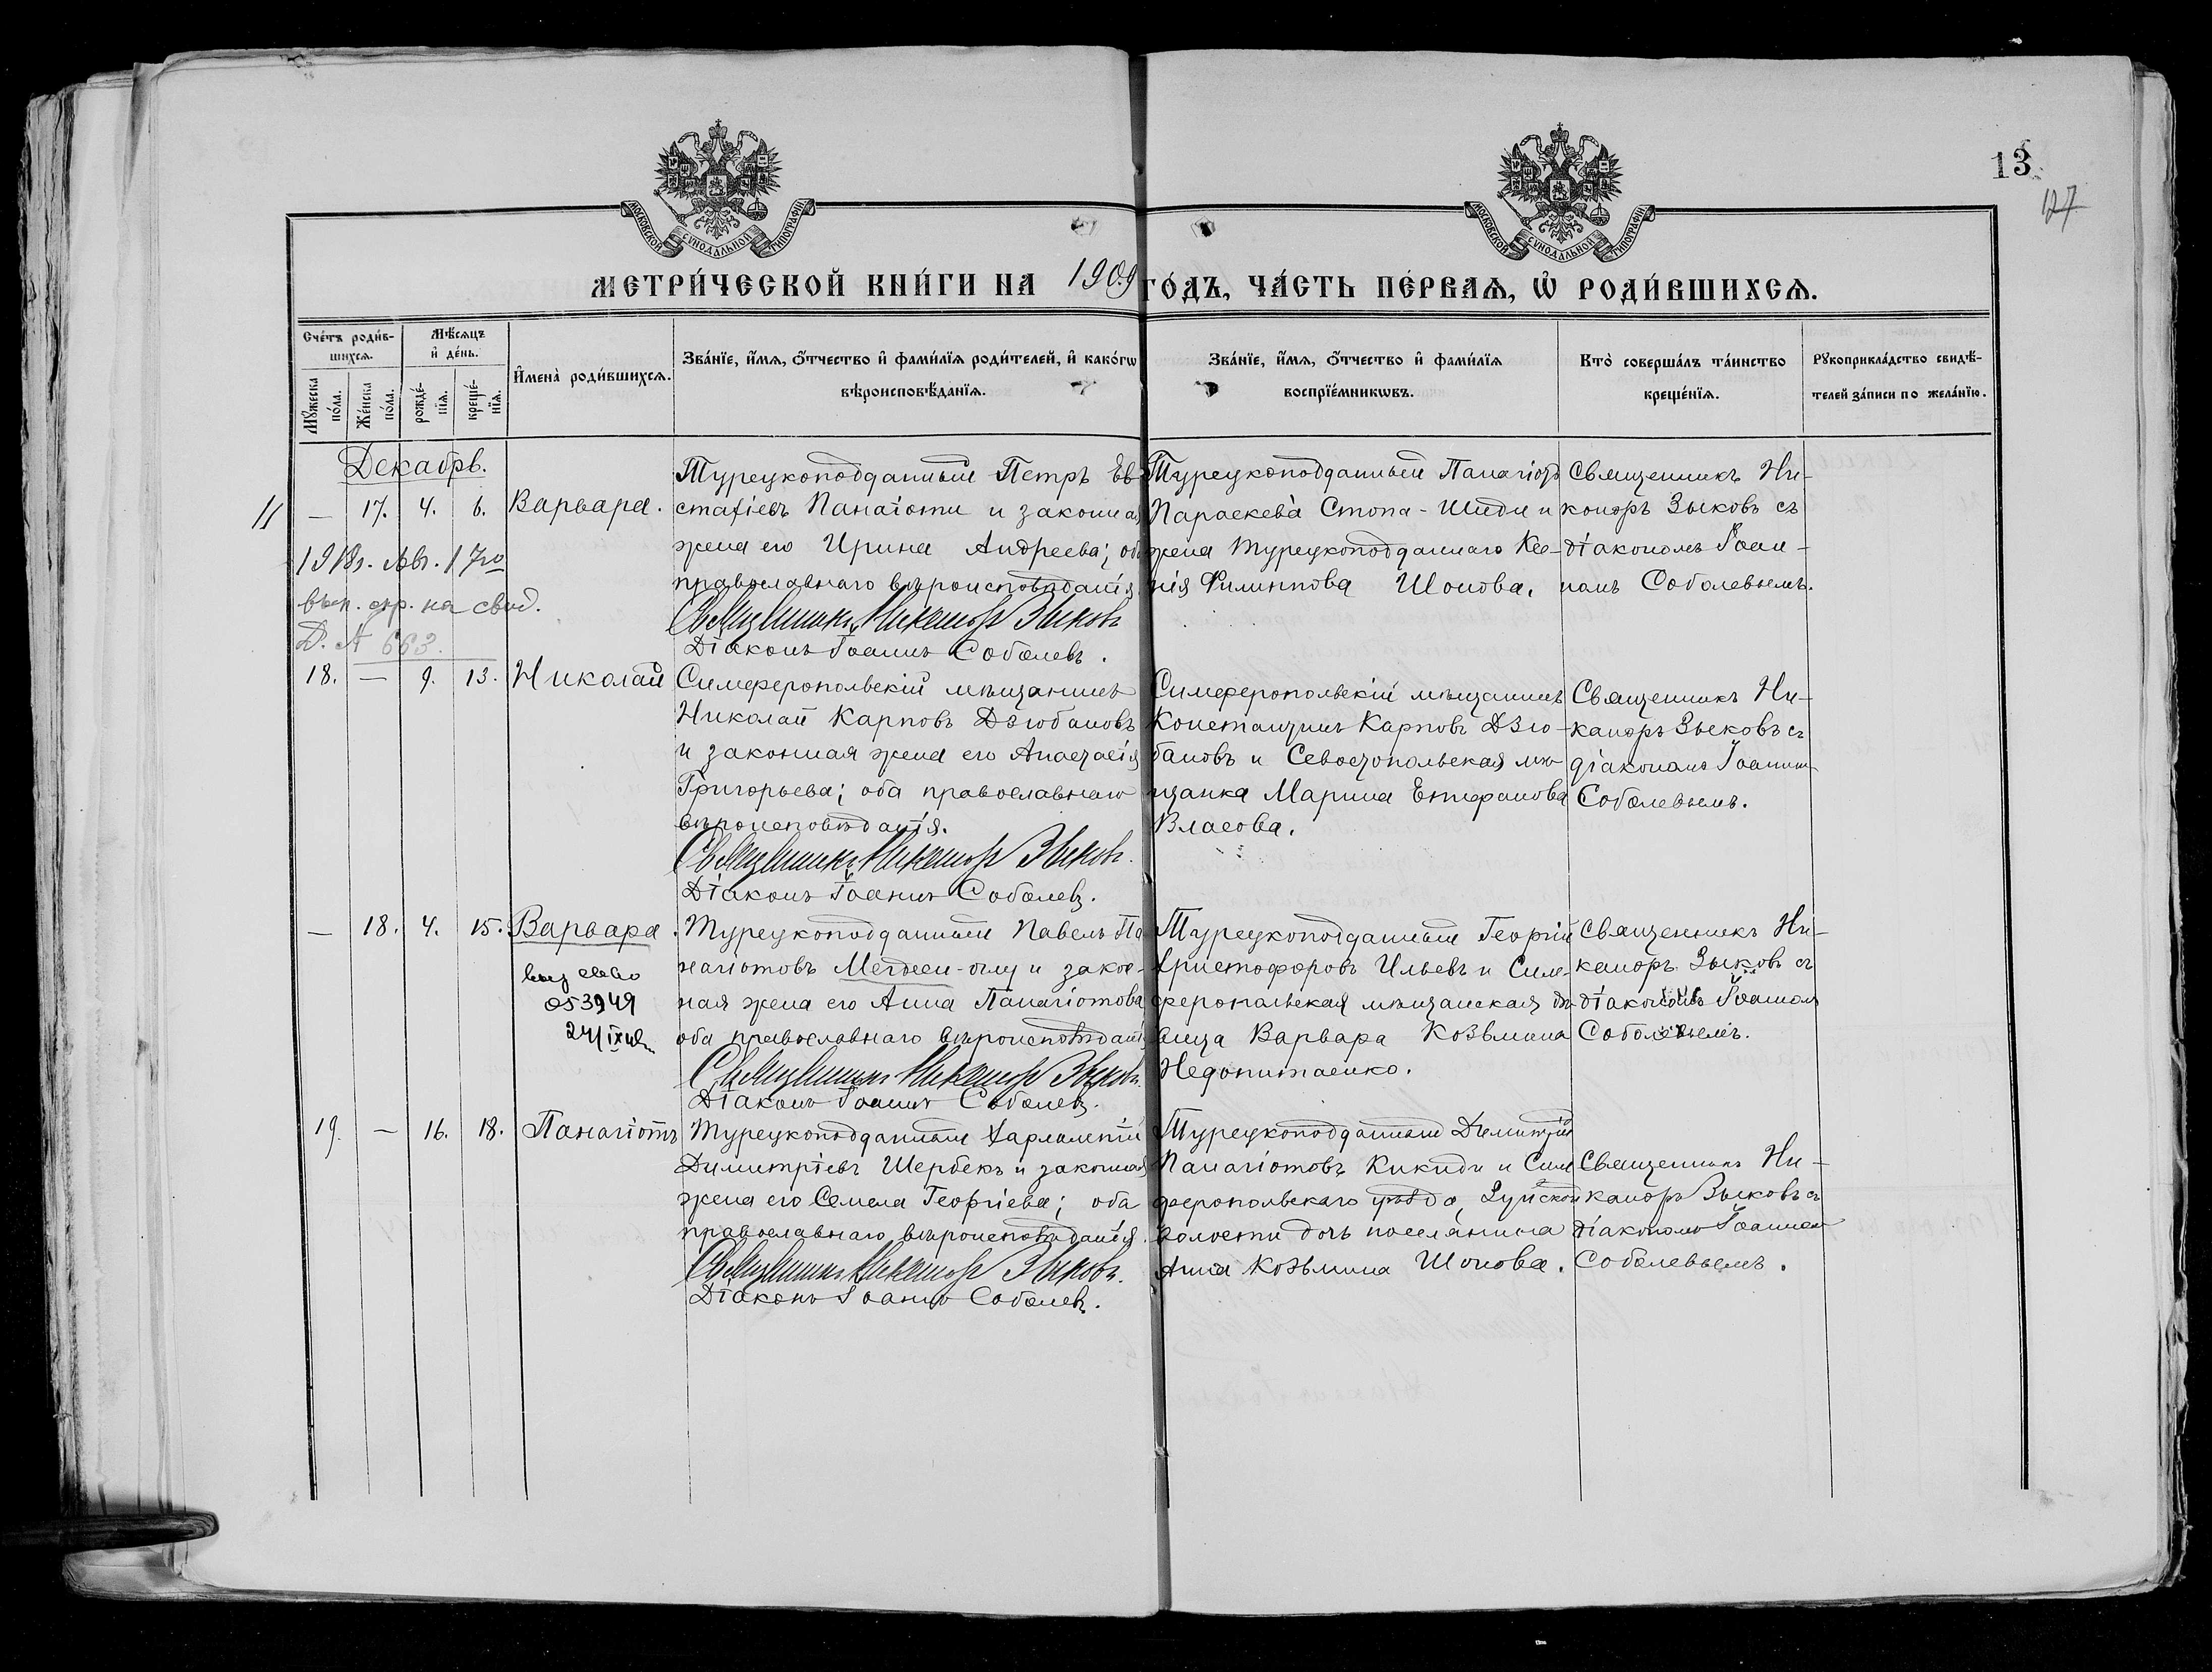 13
127
МОСКОВСКОЙ СѴНОДАЛЬНОЙ ТИПОГРАФІИ
МОСКОВСКОЙ СѴНОДАЛЬНОЙ ТИПОГРАФІИ
МЕТРИ́ЧЕСКОЙ КНИ́ГИ НА 1909 ГО́ДЪ, ЧА́СТЬ ПЕ́РВАѦ, Ѽ РОДИ́ВШИХСѦ.
Сче́тъ роди́в-
шихсѧ.
Мꙋ́жеска по́ла.
Же́нска по́ла.
Мѣ́сѧцъ
и҆ де́нь.
рожде́-
нїѧ.
креще́-
нїѧ.
И҆мена̀ роди́вшихсѧ.
Зва́нїе, и҆́мѧ, ѻ҆́тчество и҆ фами́лїѧ роди́телей, и҆ како́гѡ
вѣроисповѣ́данїѧ.
Зва́нїе, и҆́мѧ, ѻ҆́тчество и҆ фами́лїѧ
воспрїе́мникѡвъ.
Кто̀ соверша́лъ та́инство
креще́нїѧ.
Рꙋкоприкла́дство свидѣ́-
телей за́писи по жела́нїю.
Декабрь.
11
— 17. 4. 6. Варвара.
Турецкоподданный Петръ Ев-
стафіевъ Панаіоти и законная
жена его Ирина Андреева; оба
православнаго вѣроисповѣданія
Священникъ Никаноръ Зыковъ
Діаконъ Іоаннъ Соболевъ.
Турецкоподданный Панагіотъ
Параскева Стопа-Шиди и
жена турецкоподданнаго Ксе-
нія Филиппова Шонова.
Священникъ Ни-
каноръ Зыковъ съ
діакономъ Іоан-
номъ Соболевымъ.
вып. на свид.
Д. № 663.
18. — 9. 13. Николай
Симферопольскій мѣщанинъ
Николай Карповъ Дзюбановъ
и законная жена его Анастасія
Григорьева; оба православнаго
вѣроисповѣданія.
Священникъ Никаноръ Зыковъ.
Діаконъ Іоаннъ Соболевъ.
Симферопольскій мѣщанинъ
Константинъ Карповъ Дзю-
бановъ и Севастопольская мѣ-
щанка Марина Епифанова
Власова.
Священникъ Ни-
каноръ Зыковъ съ
діакономъ Іоанном
Соболевымъ.
— 18. 4. 15. Варвара.
053949
Турецкоподданный Павелъ Па-
нагіотовъ Мегдеси-оглу и закон-
ная жена его Анна Панагіотова
оба православнаго вѣроисповѣданія
Священникъ Никаноръ Зыковъ.
Діаконъ Іоаннъ Соболевъ.
Турецкоподданный Георгій
Христофоровъ Ильевъ и Сим-
феропольская мѣщанская дѣ-
вица Варвара Козьмина
Недопитаенко.
Священникъ Ни-
каноръ Зыковъ съ
діакономъ Іоанном
Соболевымъ.
19. — 16. 18. Панагіотъ
Турецкоподданный Харлампій
Димитріевъ Шербекъ и законная
жена его Семела Георгіева; оба
православнаго вѣроисповѣданія.
Священникъ Никаноръ Зыковъ.
Діаконъ Іоаннъ Соболевъ.
Турецкоподданный Димитрій
Панагіотовъ Кикиди и Сим-
феропольскаго уѣзда, Зуйской
волости дочь поселянина
Анна Козьмина Шонова.
Священникъ Ни-
каноръ Зыковъ съ
діакономъ Іоанном
Соболевымъ.